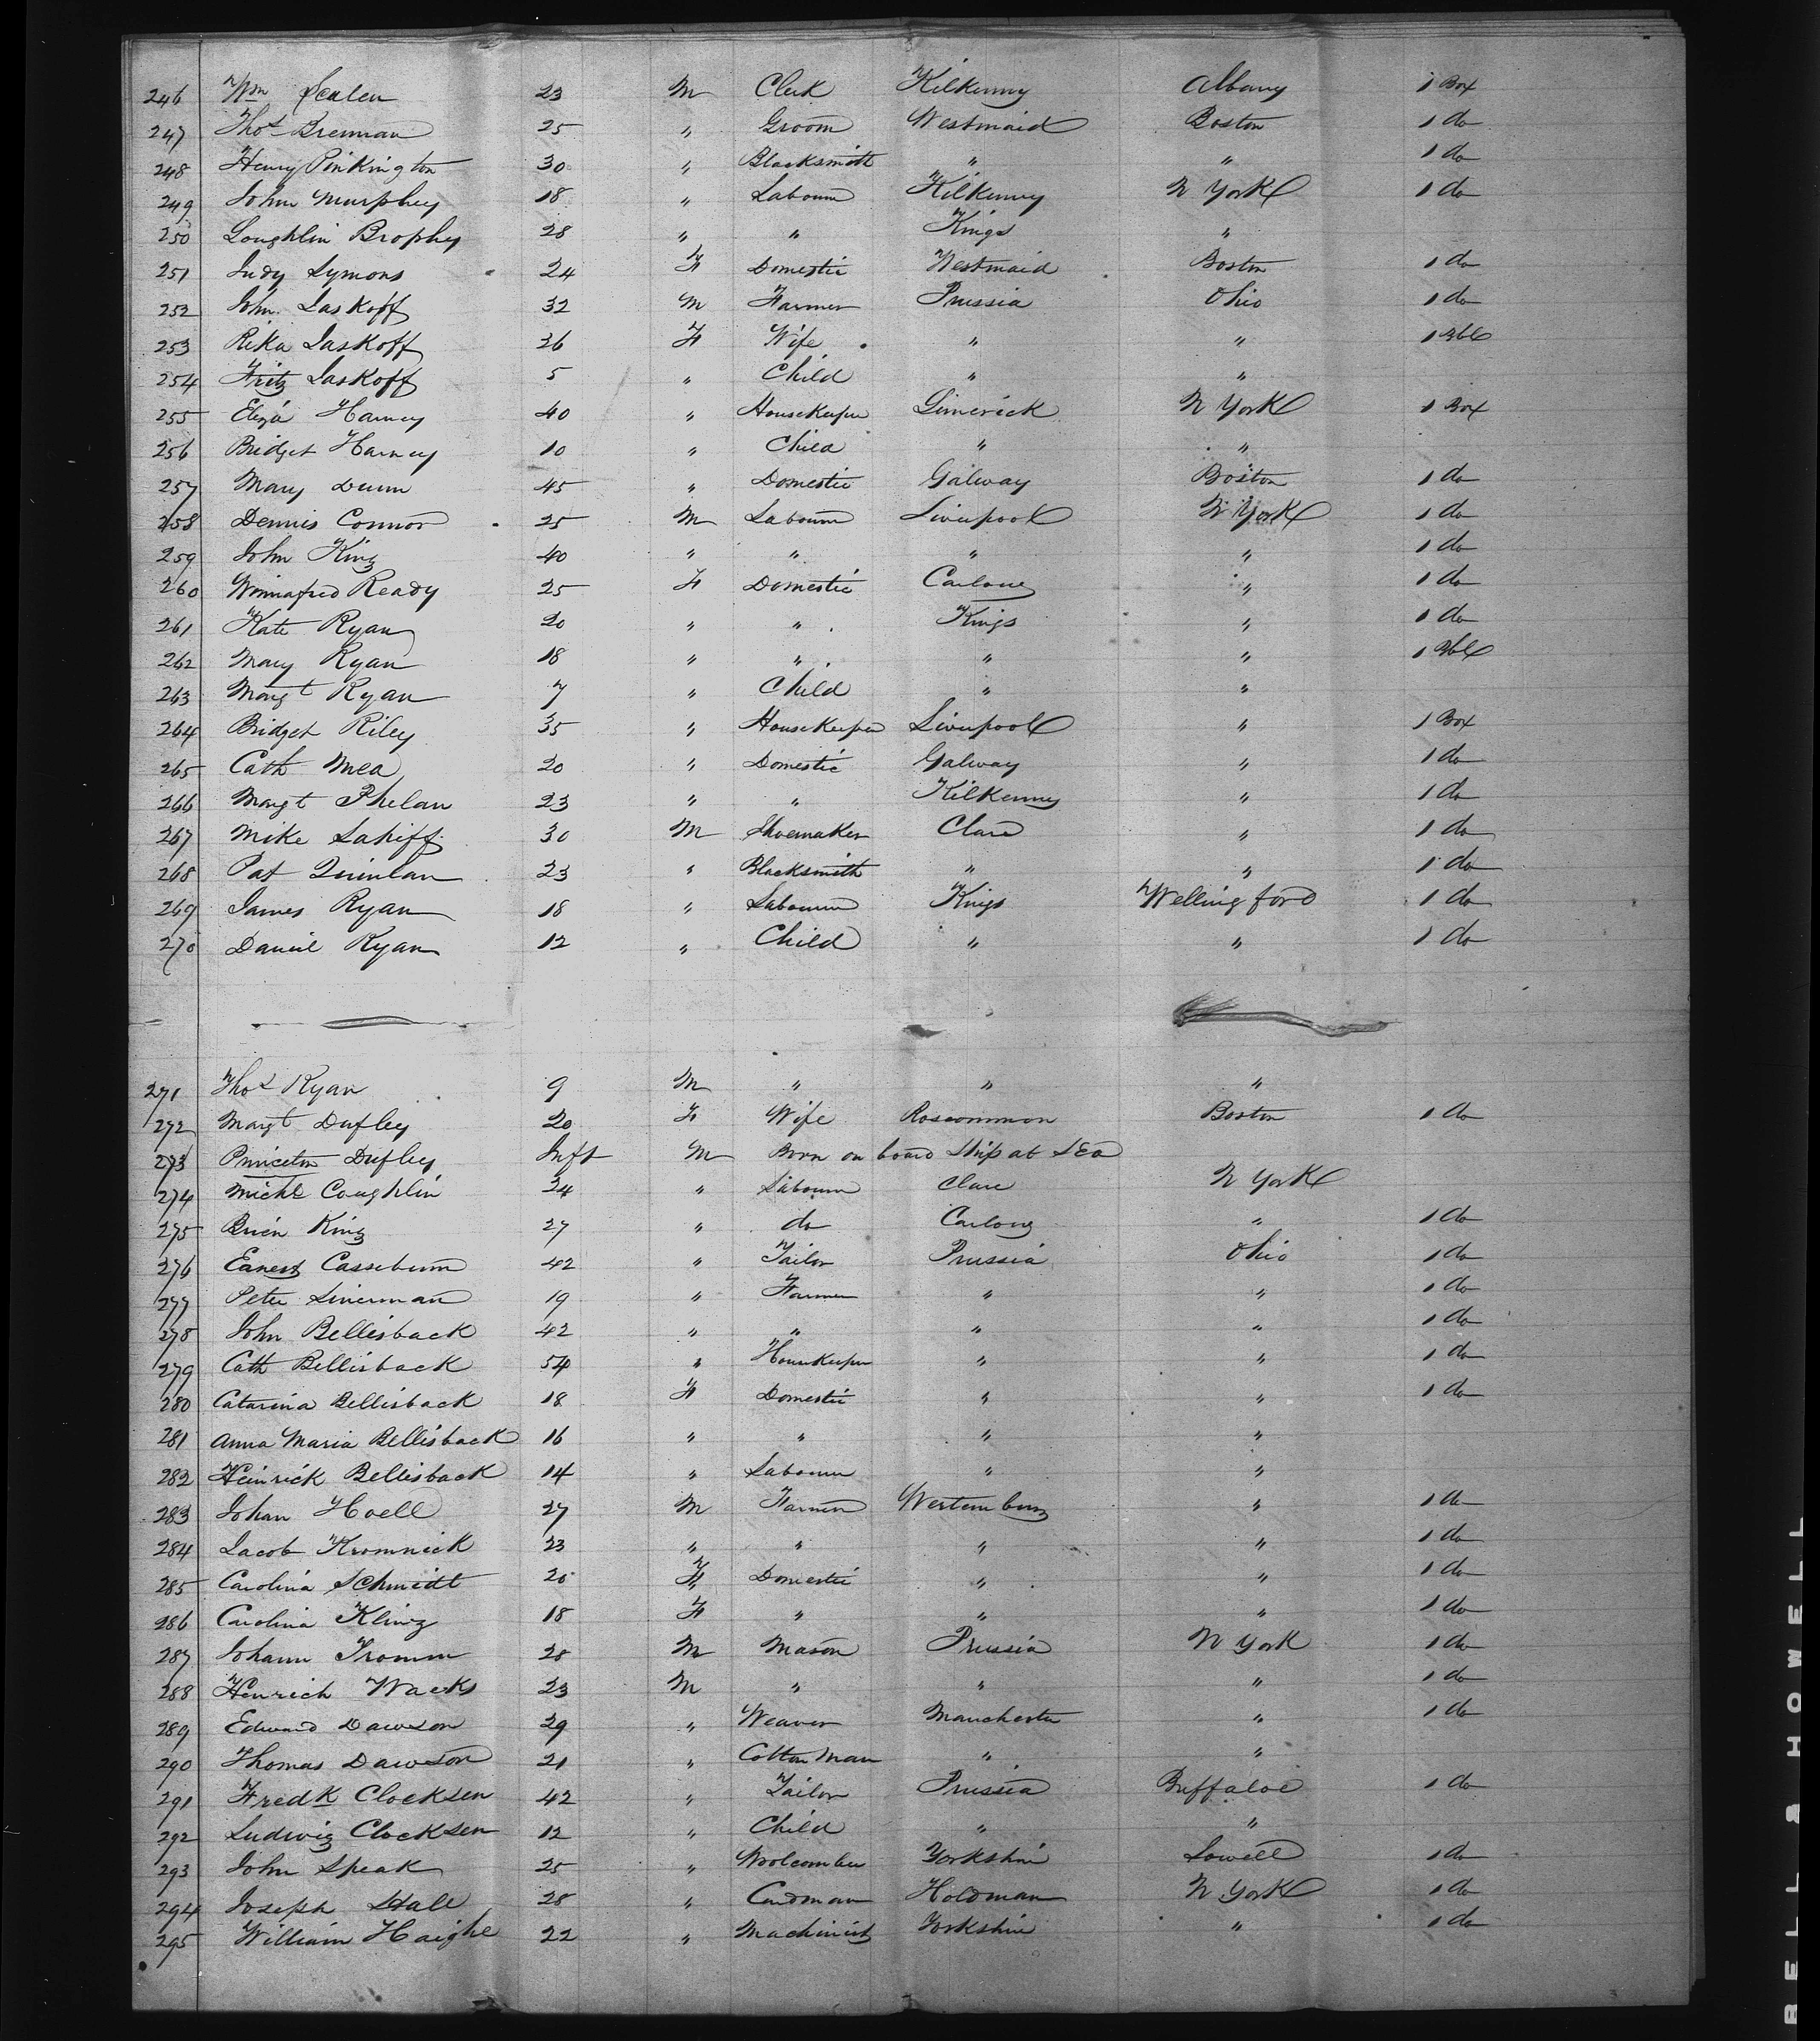 246 Wm Scalen 23 M Clerk Kilkenny Albany 1 Box
247 Thos Brennan 25 " Groom Westmaid Boston 1 do
248 Henry Pinkington 30 " Blacksmith " " 1 do
249 John Murphey 18 " Labourer Kilkenny N York 1 do
250 Loughlin Brophy 28 " " Kings "
251 Judy Symons 24 F Domestic Westmaid Boston 1 do
252 John Laskoff 32 M Farmer Prussia Ohio 1 do
253 Rika Laskoff 26 F Wife " " 1 Bbl
254 Fritz Laskoff 5 " Child " "
255 Eliza Harney 40 " HouseKeeper Limerick N York 1 Box
256 Bridget Harney 10 " Child " "
257 Mary Dunn 45 " Domestic Galway Boston 1 do
258 Dennis Connor 25 M Labourer Liverpool N York 1 do
259 John King 40 " " " " 1 do
260 Winnafred Ready 25 F Domestic Carlow " 1 do
261 Kate Ryan 20 " " Kings " 1 do
262 Mary Ryan 18 " " " " 1 Bbl
263 Margt Ryan 7 " Child " "
264 Bridget Riley 35 " HouseKeeper Liverpool " 1 Box
265 Cath Mea 20 " Domestic Galway " 1 do
266 Margt Phelan 23 " " Kilkenny " 1 do
267 Mike Lahiff 30 M Shoemaker Clare " 1 do
268 Pat Quinlan 23 " Blacksmith " " 1 do
269 James Ryan 18 " Labourer Kings Wellingford 1 do
270 Daniel Ryan 12 " Child " " 1 do
271 Thos Ryan 9 M " " "
272 Margt Dufley 20 F Wife Roscommon Boston 1 do
273 Princeton Dufley Inft M Born on board Ship at Sea
274 Michl Coughlin 24 " Labourer Clare N York
275 Brien King 27 " do Carlow " 1 do
276 Earnest Cassebum 42 " Tailor Prussia Ohio 1 do
277 Peter Linerman 19 " Farmer " " 1 do
278 John Bellisback 42 " " " " 1 do
279 Cath Bellisback 54 " HouseKeeper " " 1 do
280 Catarina Bellisback 18 F Domestic " " 1 do
281 Anna Maria Bellisback 16 " " " "
282 Heinrick Bellisback 14 " Labourer " "
283 Johan Hoell 27 M Farmer Westemburg " 1 do
284 Jacob Kromnick 23 " " " " 1 do
285 Carolina Schmidt 20 F Domestic " " 1 do
286 Carolina Kling 18 F " " " 1 do
287 Johann Fromm 28 M Mason Prussia N York 1 do
288 Henrich Wacks 23 M " " " 1 do
289 Edward Dawson 29 " Weaver Manchester " 1 do
290 Thomas Dawson 21 " Cotton Man " "
291 Fredk Clocksen 42 " Tailor Prussia Buffaloe 1 do
292 Ludwig Clocksen 12 " Child " "
293 John Speak 25 " Woolcomber Yorkshire Lowell 1 do
294 Joseph Hall 28 " Cardman Holdman N York 1 do
295 William Haighe 22 " Machinist Yorkshire " 1 do
BELL & HOWELL